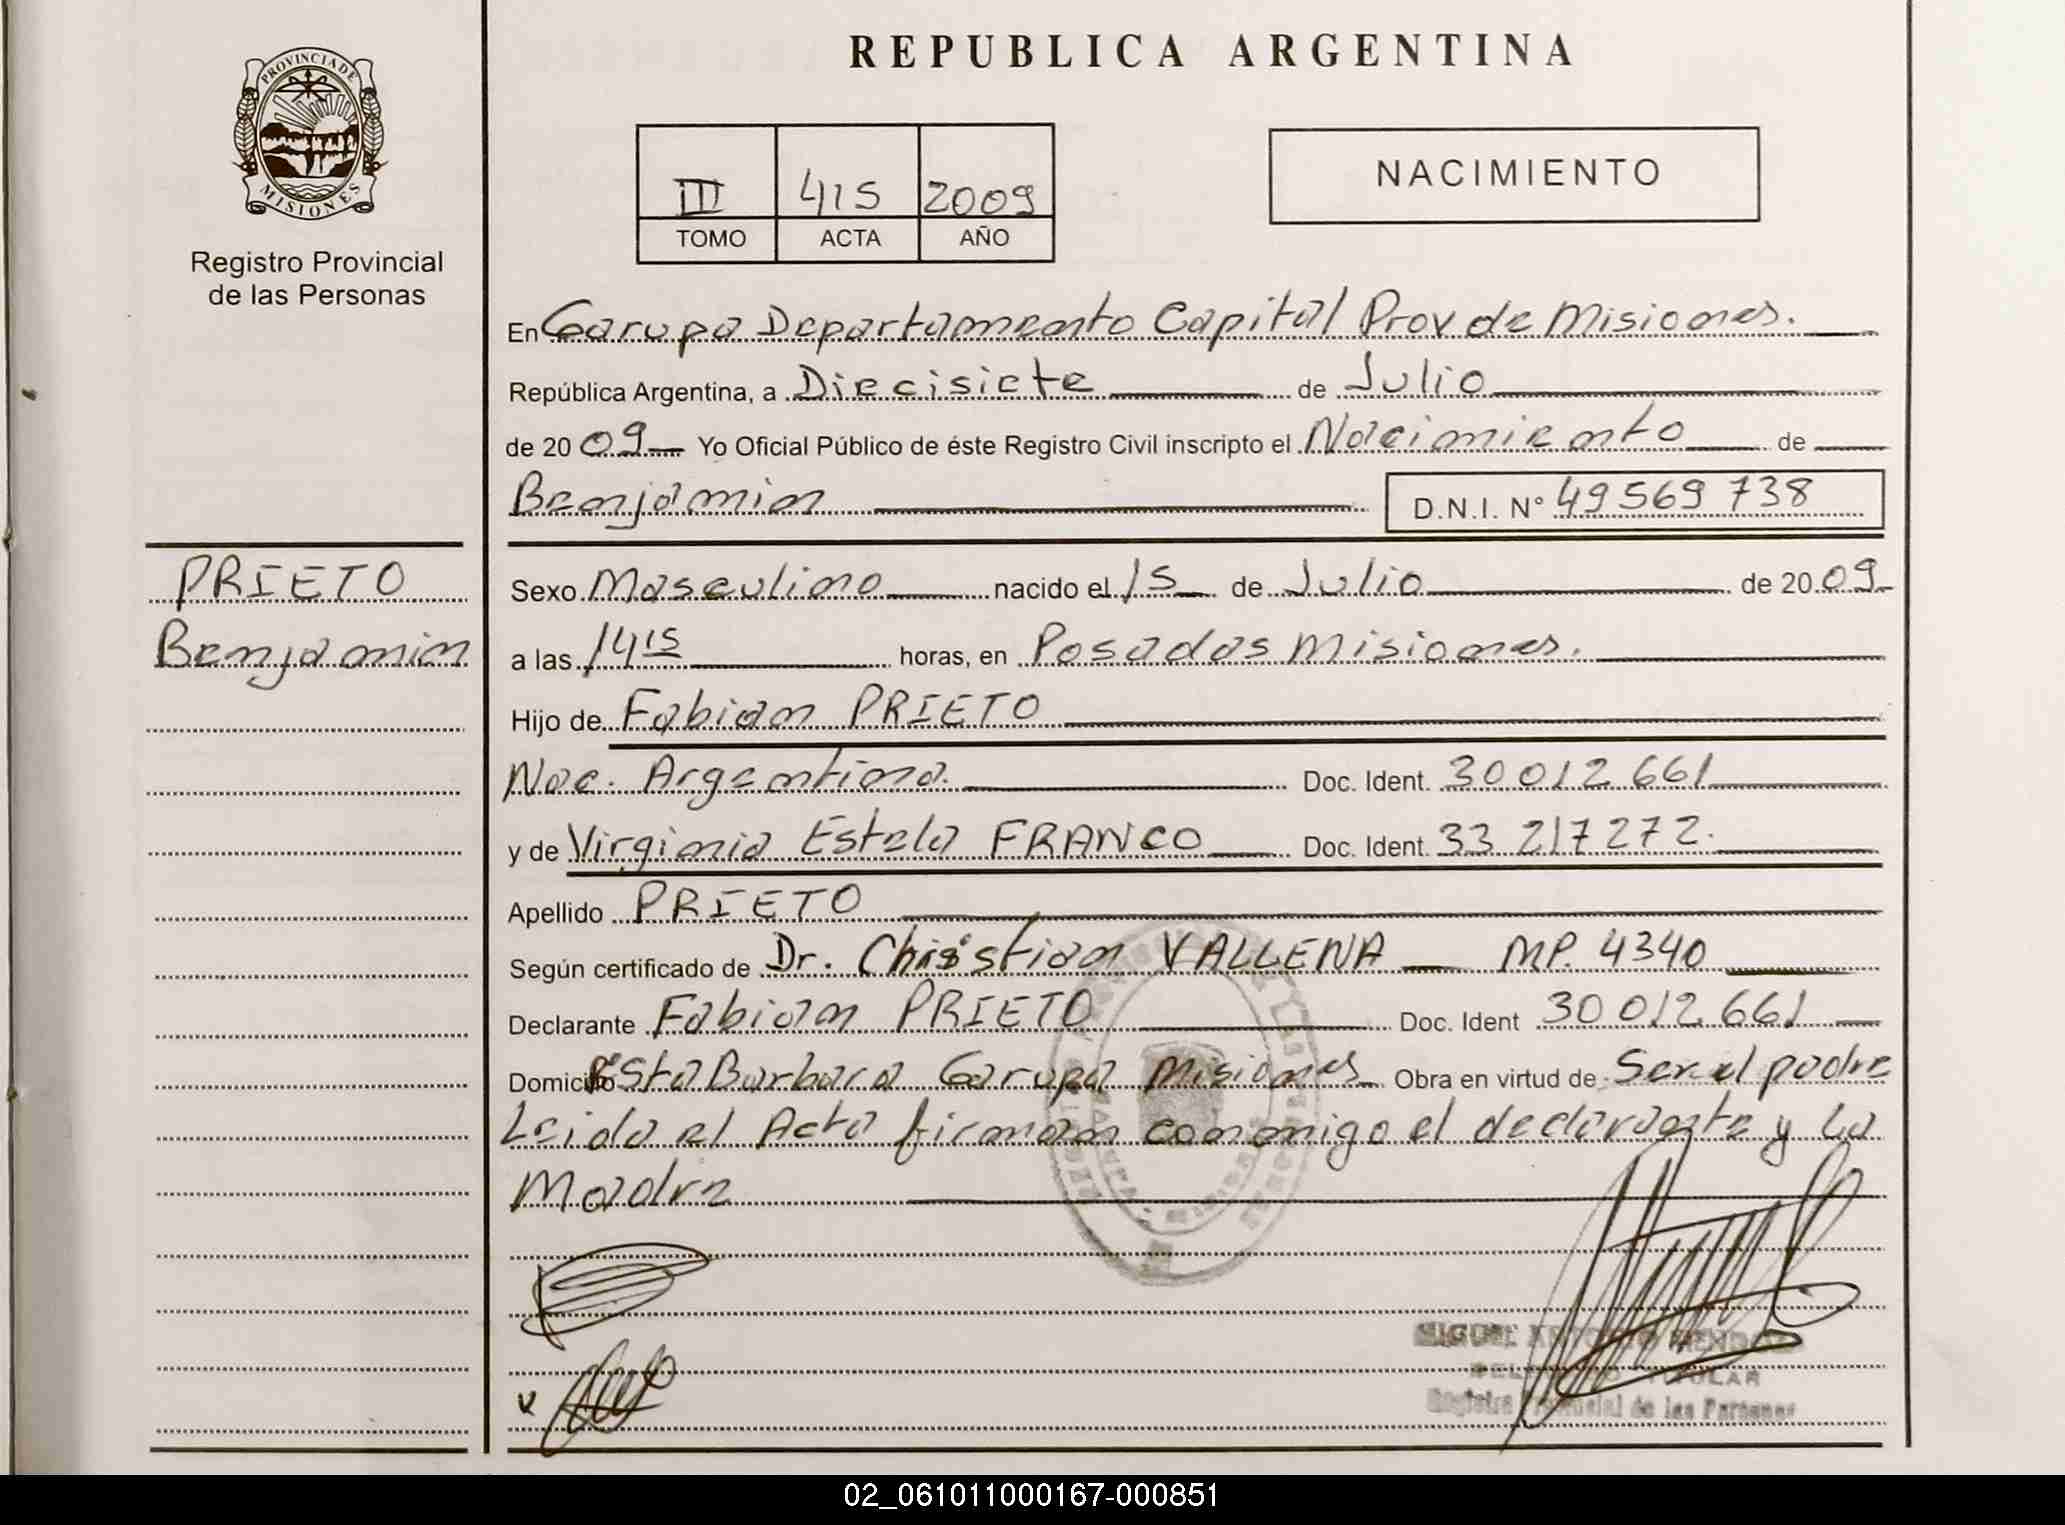 PROVINCIA DE
MISIONES
Registro Provincial
de las Personas
REPUBLICA ARGENTINA
III 415 2009
TOMO ACTA AÑO
NACIMIENTO
En Garupa Departamento Capital Prov de Misiones.
República Argentina, a Diecisiete de Julio
de 20 09 Yo Oficial Público de éste Registro Civil inscripto el Nacimiento de
Benjamin D.N.I. N° 49 569 738
PRIETO
Benjamin
Sexo Masculino nacido el 15 de Julio de 20 09
a las 14 15 horas, en Posadas Misiones.
Hijo de Fabian PRIETO
Nac. Argentina. Doc. Ident. 30 012 661
y de Virginia Estela FRANCO Doc. Ident. 33 217 272.
Apellido PRIETO
Según certificado de Dr. Christian VALLENA MP. 4340
Declarante Fabian PRIETO Doc. Ident 30 012 661
Domicilio Sta Barbara Garupa Misiones Obra en virtud de Ser el padre
Leida el Acta firman conmigo el declarante y la
Madre
MIGUEL ANTONIO
TITULAR
Registro Provincial de las Personas
02_061011000167-000851